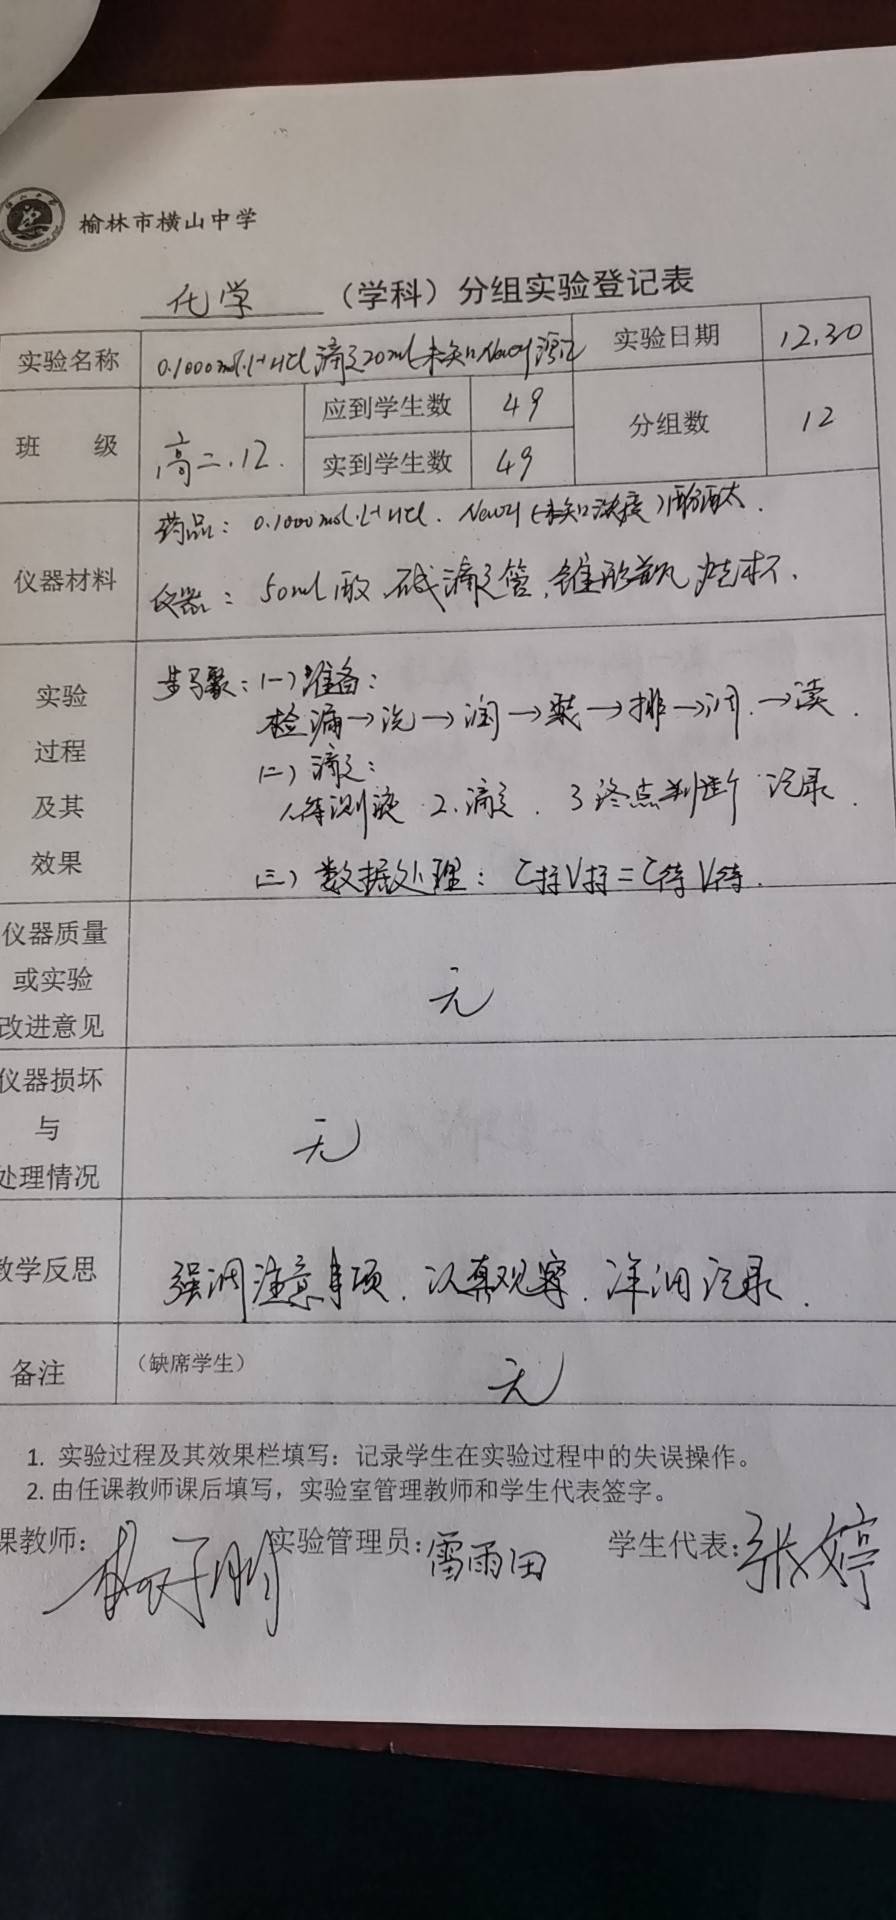 榆林市横山中学
化学（学科）分组实验登记表
实验名称 0.1000mol·L⁻¹HCl滴定20ml未知NaOH溶液 实验日期 12.30
班 级 高二.12. 应到学生数 49 分组数 12
实到学生数 49
仪器材料 药品：0.1000mol·L⁻¹HCl. NaOH(未知浓度)酚酞.
仪器：50ml酸.碱滴定管,锥形瓶 烧杯.
实验过程及其效果 步骤：(一)准备：
检漏→洗→润→装→排→调.→读.
(二)滴定：
1.待测液 2.滴定. 3终点判断 记录.
(三)数据处理：C标V标=C待V待.
仪器质量或实验改进意见 无
仪器损坏与处理情况 无
教学反思 强调注意事项.认真观察.详细记录.
备注 （缺席学生） 无
1. 实验过程及其效果栏填写：记录学生在实验过程中的失误操作。
2. 由任课教师课后填写，实验室管理教师和学生代表签字。
课教师： 实验管理员：雷雨田 学生代表：张婷